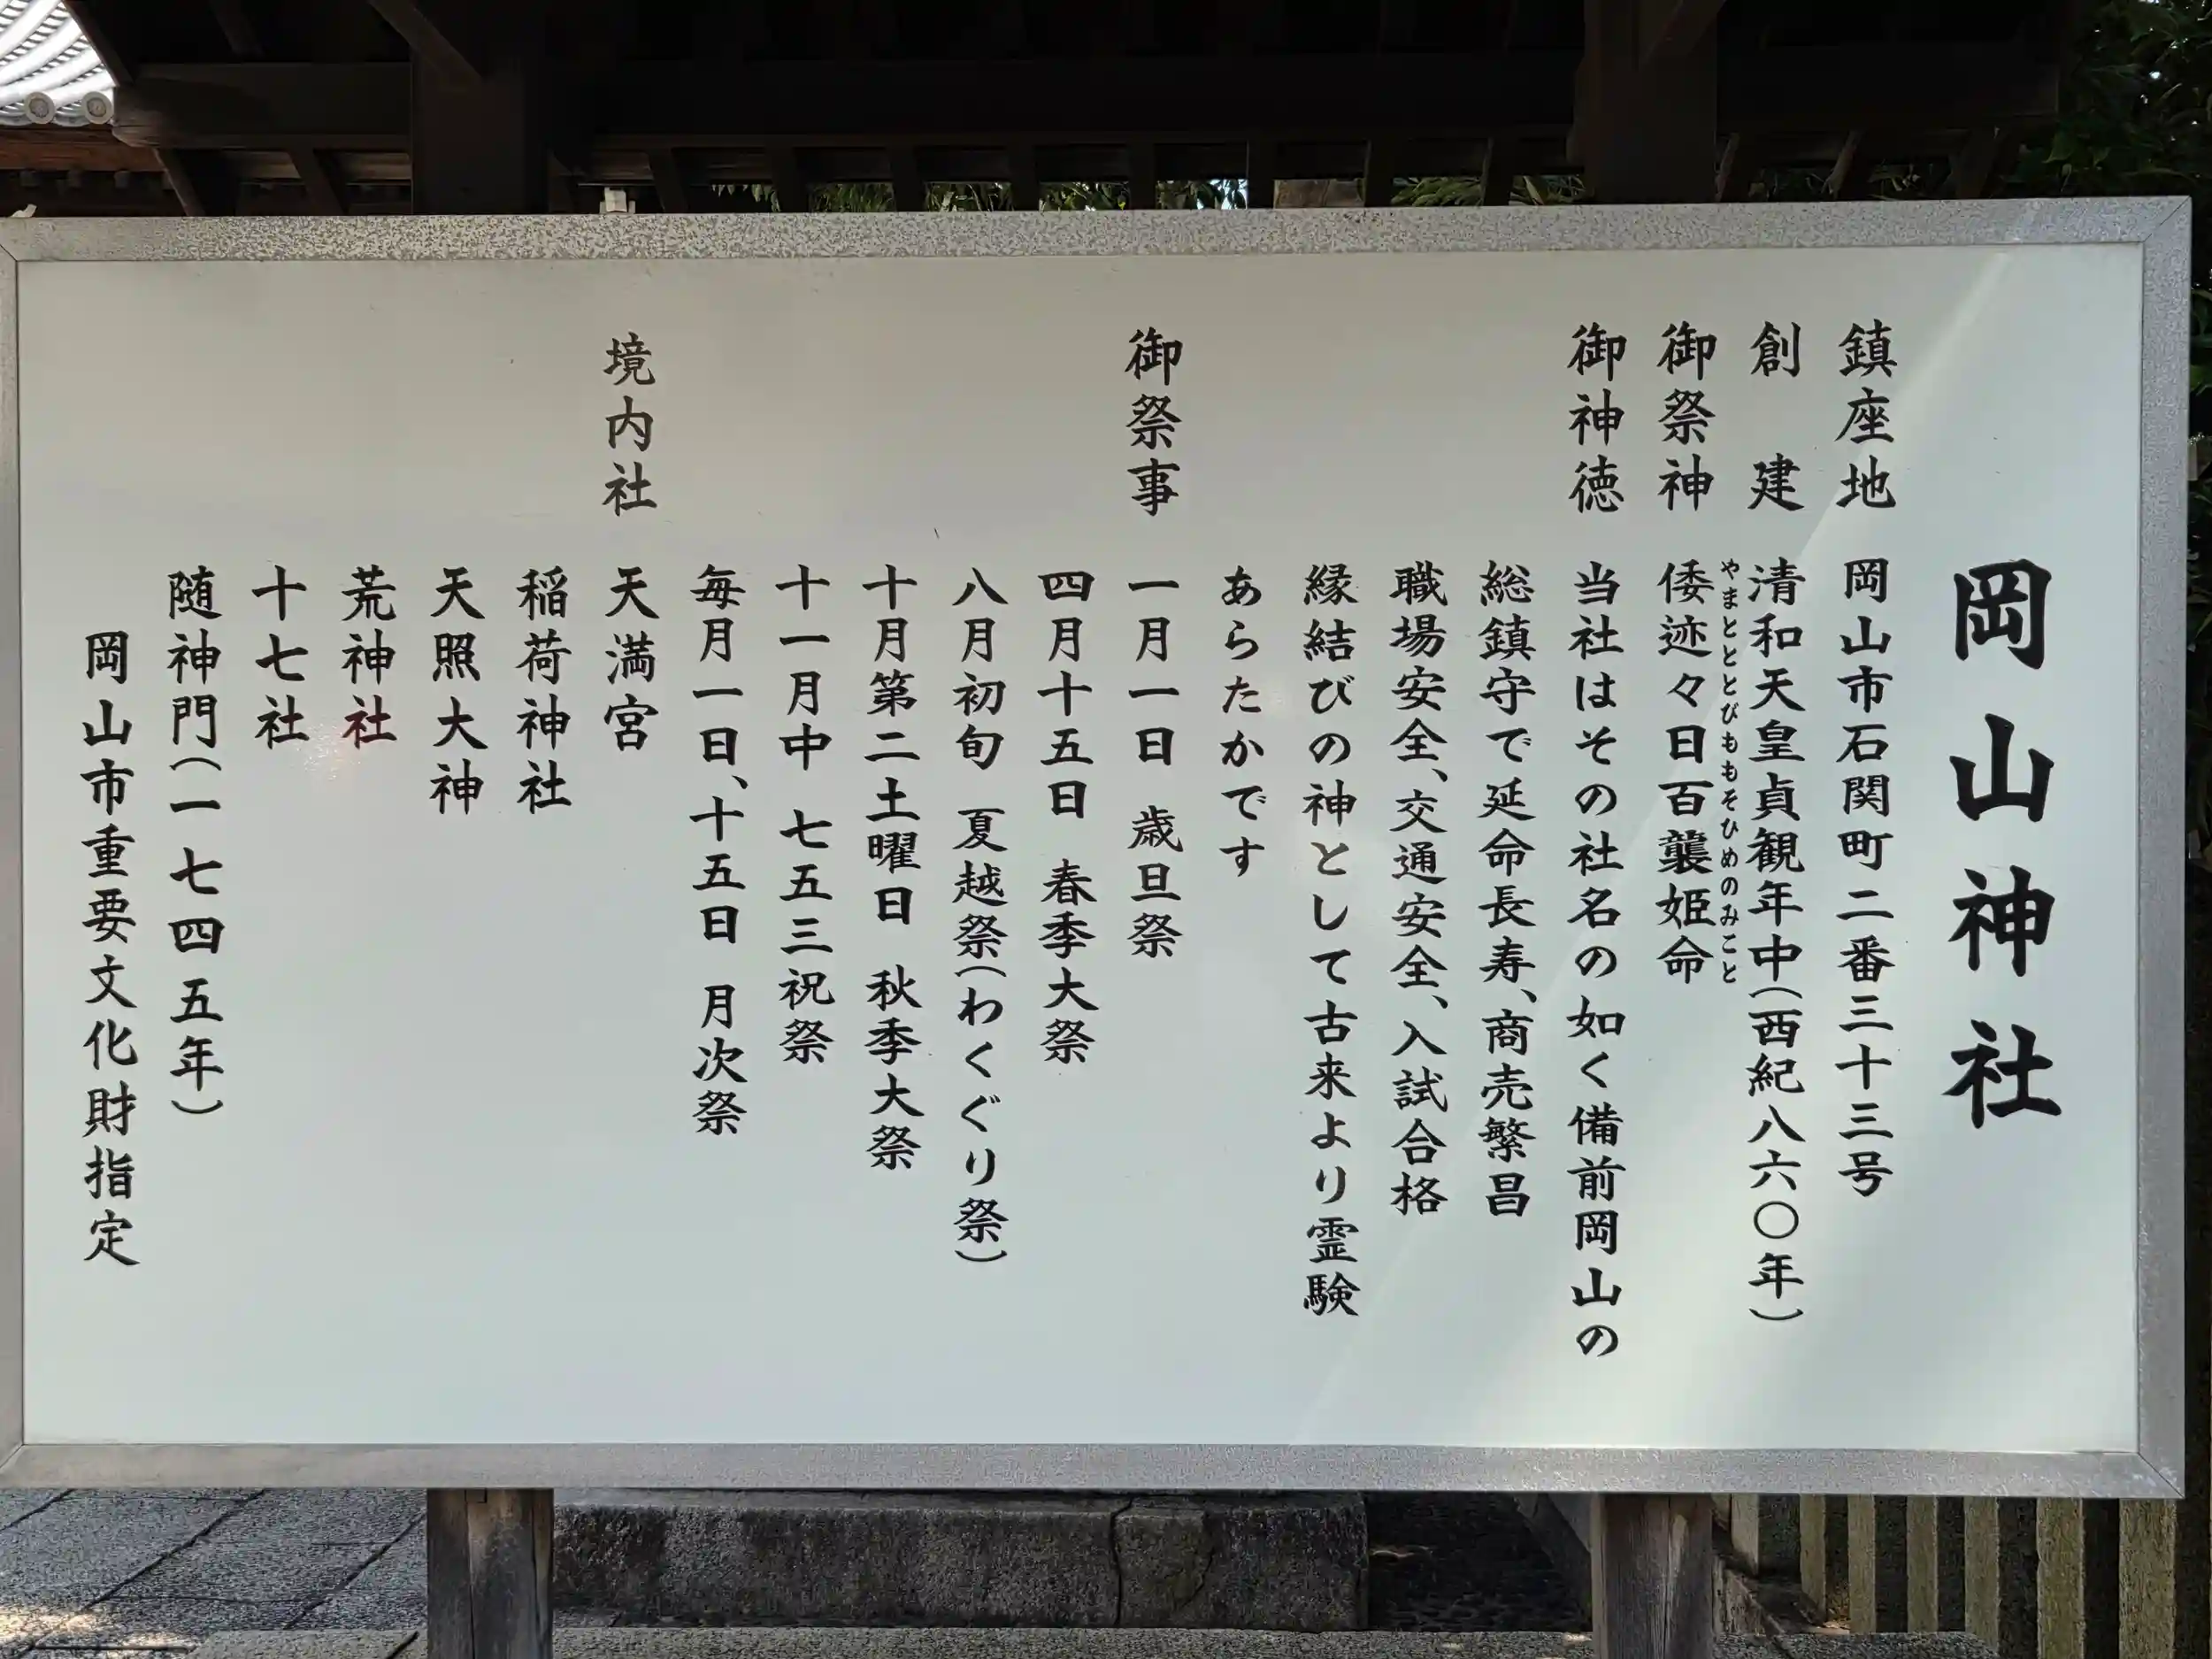 岡山神社
鎮座地 岡山市石関町二番三十三号
創建 清和天皇貞観年中(西紀八六〇年)
やまとととびももそひめのみこと
御祭神 倭迹々日百襲姫命
御神徳 当社はその社名の如く備前岡山の
総鎮守で延命長寿、商売繁昌
職場安全、交通安全、入試合格
縁結びの神として古来より霊験
あらたかです
御祭事 一月一日 歳旦祭
四月十五日 春季大祭
八月初旬 夏越祭(わくぐり祭)
十月第二土曜日 秋季大祭
十一月中 七五三祝祭
毎月一日、十五日 月次祭
境内社 天満宮
稲荷神社
天照大神
荒神社
十七社
随神門(一七四五年)
岡山市重要文化財指定